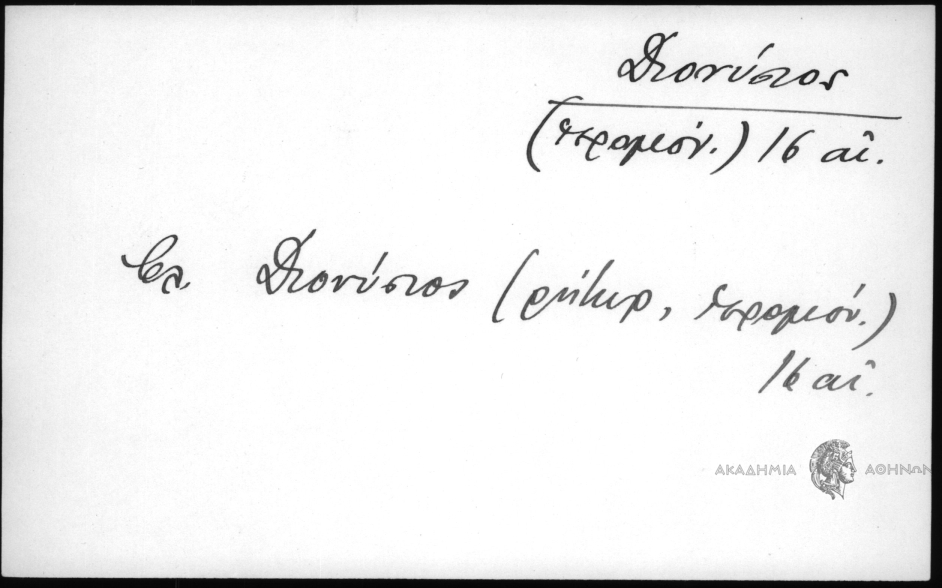 Διονύσιος
(ἱερομον.) 16 αἰ.
βλ. Διονύσιος (ρήτωρ, ἱερομον.)
16 αἰ.
ΑΚΑΔΗΜΙΑ ΑΘΗΝΩΝ